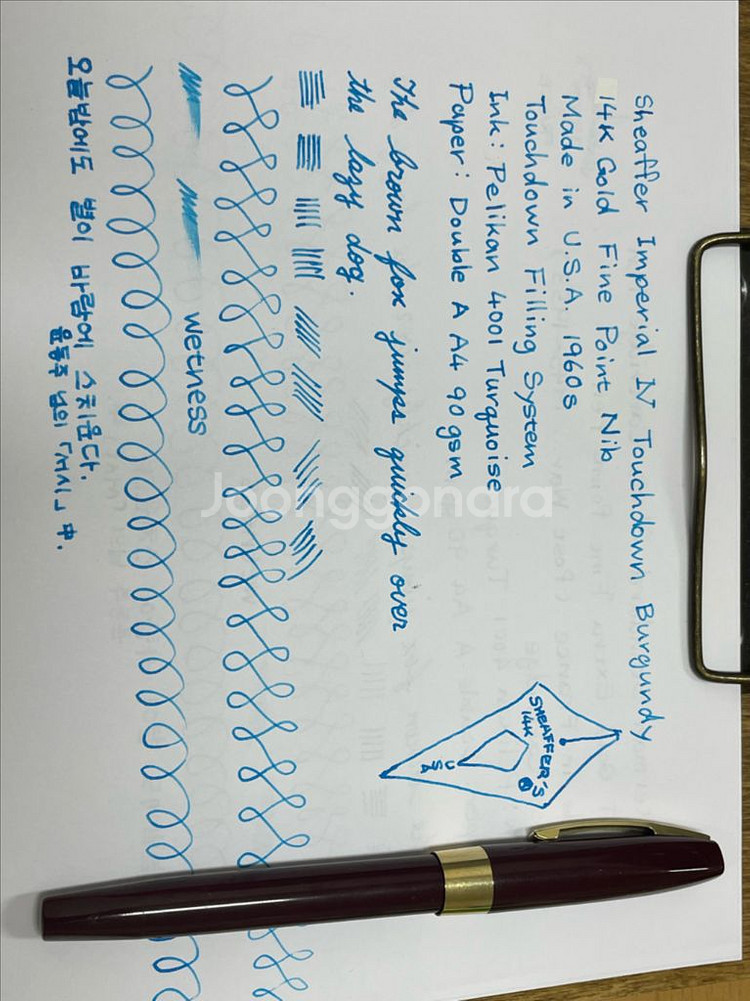 Sheaffer Imperial IV Touchdown Burgundy
14K Gold Fine Point Nib
Made in U.S.A. 1960s
Touchdown Filling System
Ink: Pelikan 4001 Turquoise
Paper: Double A A4 90 gsm
SHEAFFER'S
14K
USA
The brown fox jumps quickly over
the lazy dog.
wetness
오늘밤에도 별이 바람에 스치운다.
윤동주 님의 「서시」 中.
Joonggonara